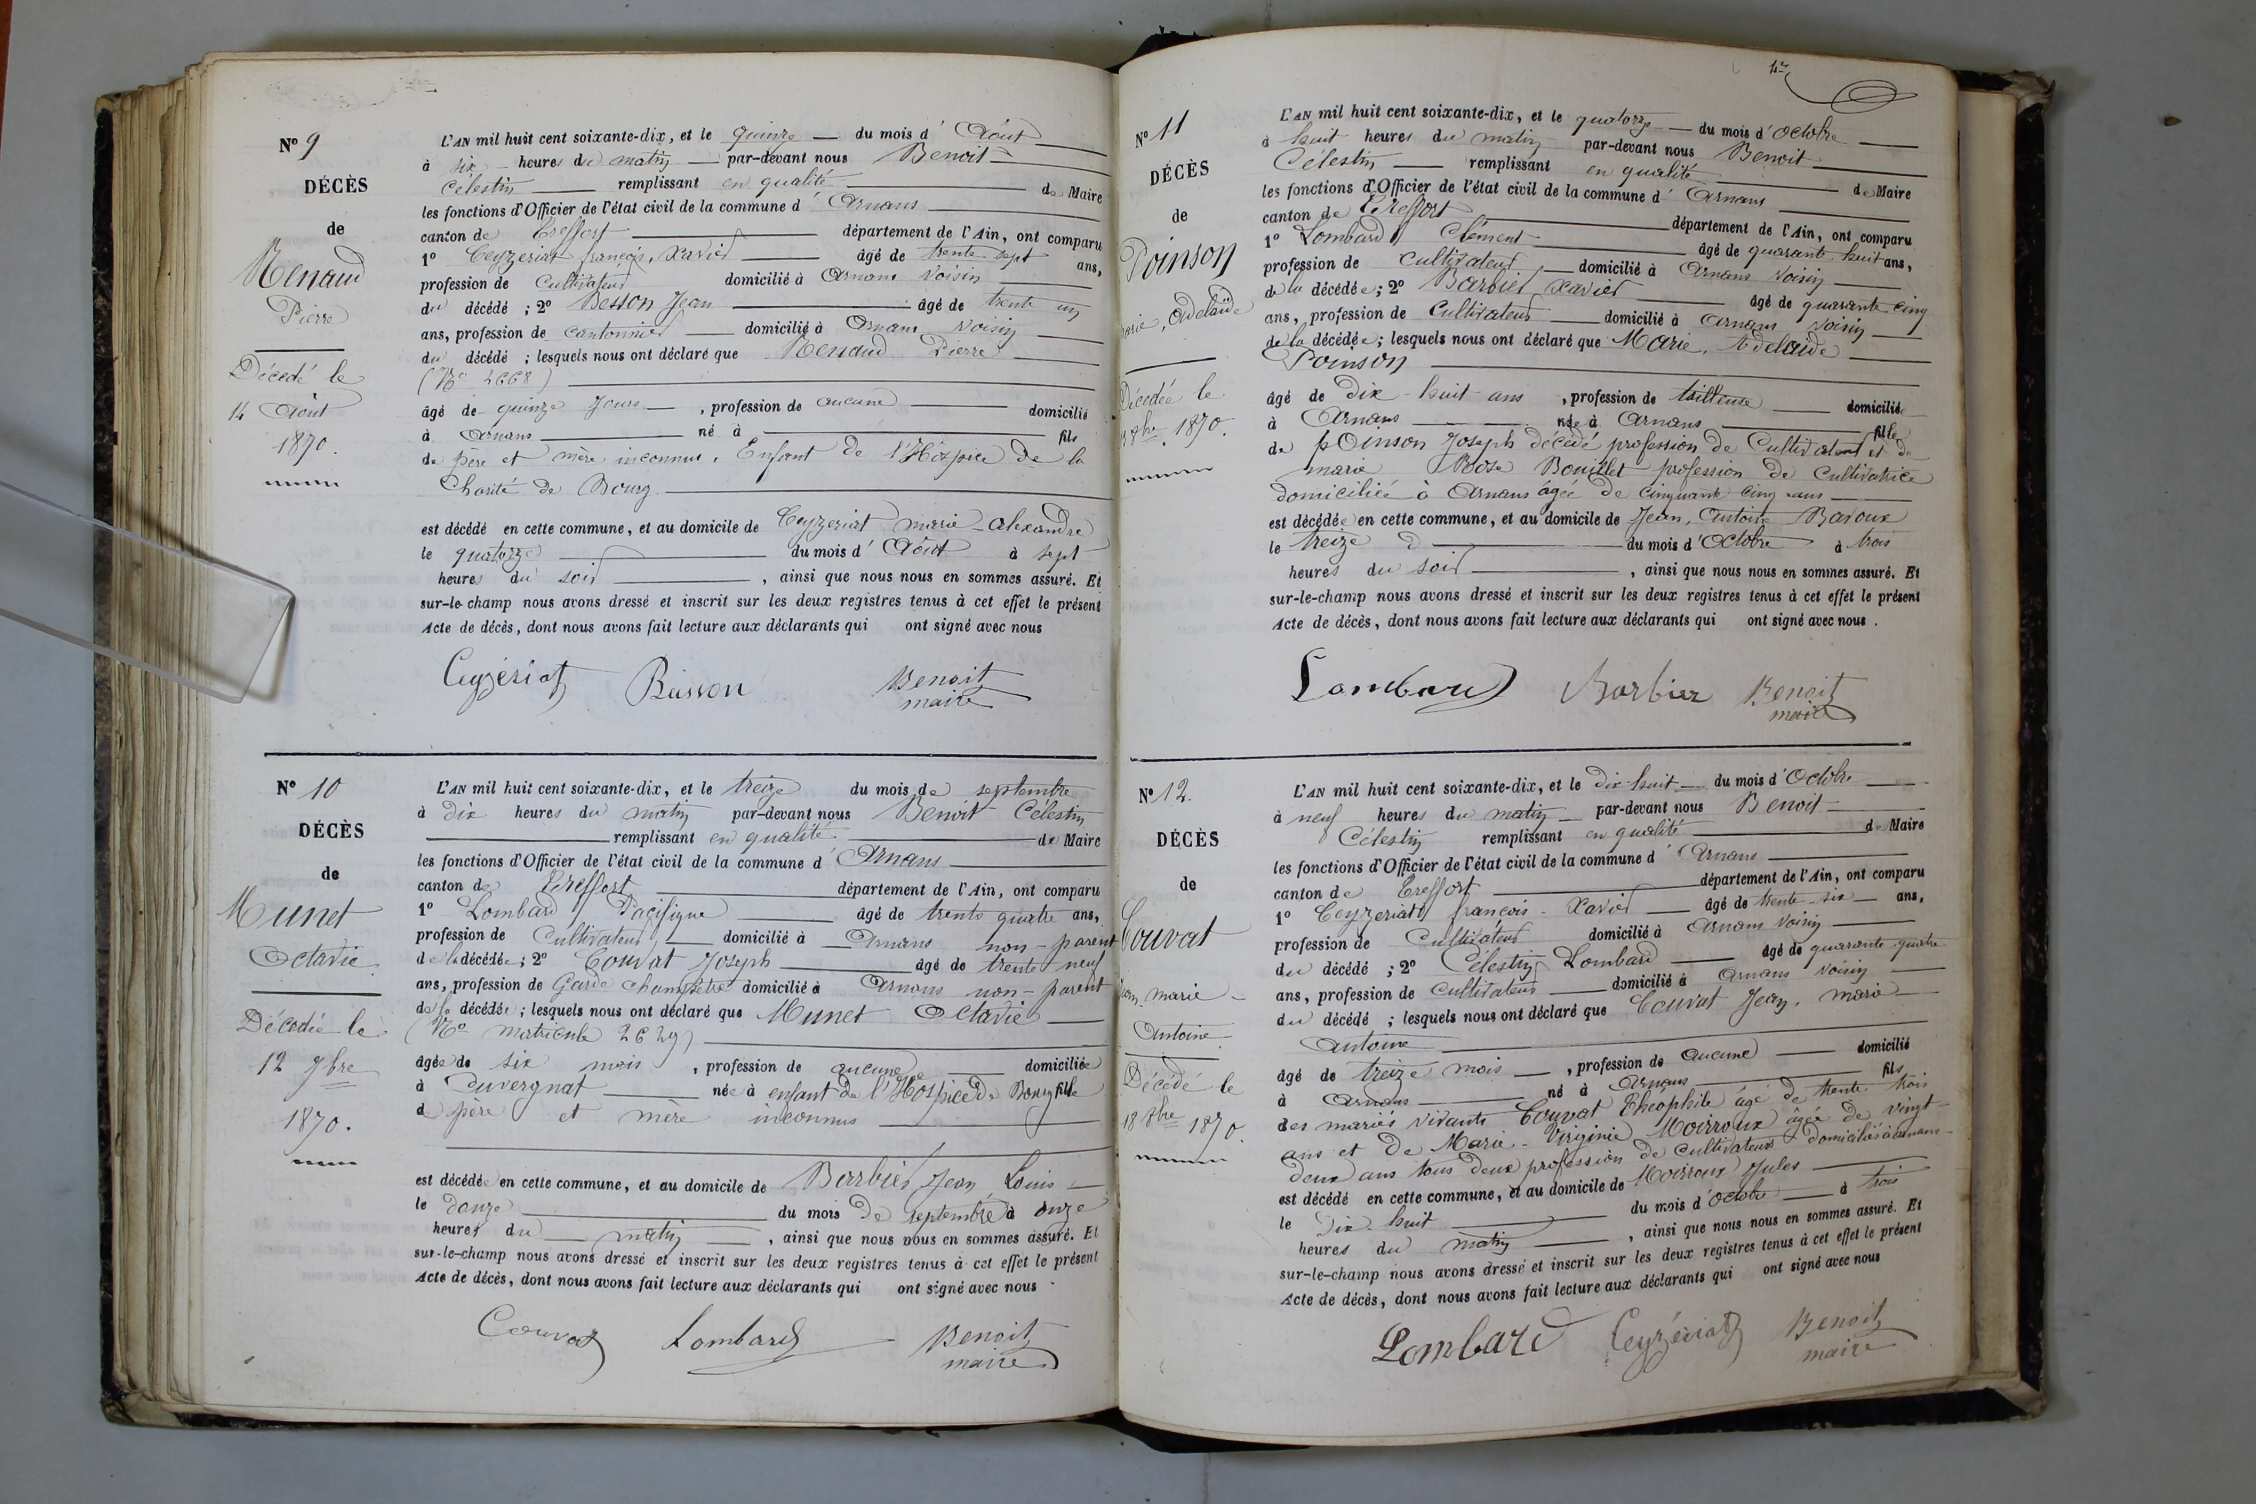 Nº 9
DÉCÈS
de
Renaud
Pierre
Décédé le
14 Août
1870.
L'AN mil huit cent soixante-dix, et le quinze du mois d'Août
à six heures du matin par-devant nous Benoit
Célestin remplissant en qualité de Maire
les fonctions d'Officier de l'état civil de la commune d'Arnans
canton de Treffort département de l'Ain, ont comparu
1º Ceyzeriat françois, Xavier âgé de trente sept ans,
profession de Cultivateur domicilié à Arnans Voisin
du décédé ; 2º Besson Jean âgé de trente un
ans, profession de cantonnier domicilié à Arnans Voisin
du décédé ; lesquels nous ont déclaré que Renaud Pierre
(Nº 2668)
âgé de quinze Jours, profession de aucune domicilié
à Arnans né à fils
de père et mère inconnus. Enfant de l'Hospice de la
Charité de Bourg.
est décédé en cette commune, et au domicile de Ceyzeriat marie-alexandre
le quatorze du mois d'Août à sept
heures du soir, ainsi que nous nous en sommes assuré. Et
sur-le-champ nous avons dressé et inscrit sur les deux registres tenus à cet effet le présent
Acte de décès, dont nous avons fait lecture aux déclarants qui ont signé avec nous
Ceyzériat Besson Benoit
maire
Nº 10
DÉCÈS
de
Munet
Octavie
Décédée le
12 7bre
1870.
L'AN mil huit cent soixante-dix, et le treize du mois de septembre
à dix heures du matin par-devant nous Benoit Célestin
remplissant en qualité de Maire
les fonctions d'Officier de l'état civil de la commune d'Arnans
canton de Treffort département de l'Ain, ont comparu
1º Lombard Pacifique âgé de trente quatre ans,
profession de Cultivateur domicilié à Arnans non-parent
de la décédée ; 2º Couvat Joseph âgé de trente neuf
ans, profession de Garde Champêtre domicilié à Arnans non-parent
de la décédée ; lesquels nous ont déclaré que Munet Octavie
(Nº matricule 2629)
âgée de six mois, profession de aucune domiciliée
à Duvergnat née à enfant de l'Hospice de Bourg fille
de père et mère inconnus
est décédée en cette commune, et au domicile de Barbier Jean Louis
le douze du mois de septembre à onze
heures du matin, ainsi que nous nous en sommes assuré. Et
sur-le-champ nous avons dressé et inscrit sur les deux registres tenus à cet effet le présent
Acte de décès, dont nous avons fait lecture aux déclarants qui ont signé avec nous
Couvat Lombard Benoit
maire
Nº 11
DÉCÈS
de
Poinson
marie, Adelaïde
Décédée le
8bre. 1870.
L'AN mil huit cent soixante-dix, et le quatorze du mois d'Octobre
à huit heures du matin par-devant nous Benoit
Célestin remplissant en qualité de Maire
les fonctions d'Officier de l'état civil de la commune d'Arnans
canton de Treffort département de l'Ain, ont comparu
1º Lombard Clément âgé de quarante huit ans,
profession de Cultivateur domicilié à Arnans Voisin
de la décédée ; 2º Barbier Xavier âgé de quarante cinq
ans, profession de Cultivateur domicilié à Arnans Voisin
de la décédée ; lesquels nous ont déclaré que Marie, Adelaïde
Poinson
âgé de Dix-huit ans, profession de tailleuse domicilié
à Arnans née à Arnans fille
de pOinson Joseph décédé profession de Cultivateur et de
marie Rose Bouillet profession de Cultivatrice
domiciliée à Arnans âgée de cinquante cinq ans
est décédée en cette commune, et au domicile de Jean, Antoine Baroux
le treize du mois d'Octobre à trois
heures du soir, ainsi que nous nous en sommes assuré. Et
sur-le-champ nous avons dressé et inscrit sur les deux registres tenus à cet effet le présent
Acte de décès, dont nous avons fait lecture aux déclarants qui ont signé avec nous.
Lombard Barbier Benoit
maire
Nº 12.
DÉCÈS
de
Couvat
Jean, marie-
Antoine
Décédé le
18 8bre 1870.
L'AN mil huit cent soixante-dix, et le dix-huit du mois d'Octobre
à neuf heures du matin par-devant nous Benoit
Célestin remplissant en qualité de Maire
les fonctions d'Officier de l'état civil de la commune d'Arnans
canton de Treffort département de l'Ain, ont comparu
1º Ceyzeriat françois-Xavier âgé de trente-six ans,
profession de Cultivateur domicilié à Arnans Voisin
du décédé ; 2º Célestin Lombard âgé de quarante-quatre
ans, profession de Cultivateur domicilié à Arnans Voisin
du décédé ; lesquels nous ont déclaré que Couvat Jean, marie
Antoine
âgé de treize mois, profession de aucune domicilié
à Arnans né à Arnans fils
des mariés vivants Couvat Théophile âgé de trente trois
ans et de Marie-Virginie Moirroux âgée de vingt-
Deux ans tous deux profession de Cultivateurs domiciliés à arnans
est décédé en cette commune, et au domicile de Moirroux Jules
le Dix-huit du mois d'octobre à trois
heures du matin, ainsi que nous nous en sommes assuré. Et
sur-le-champ nous avons dressé et inscrit sur les deux registres tenus à cet effet le présent
Acte de décès, dont nous avons fait lecture aux déclarants qui ont signé avec nous
Lombard Ceyzériat Benoit
maire